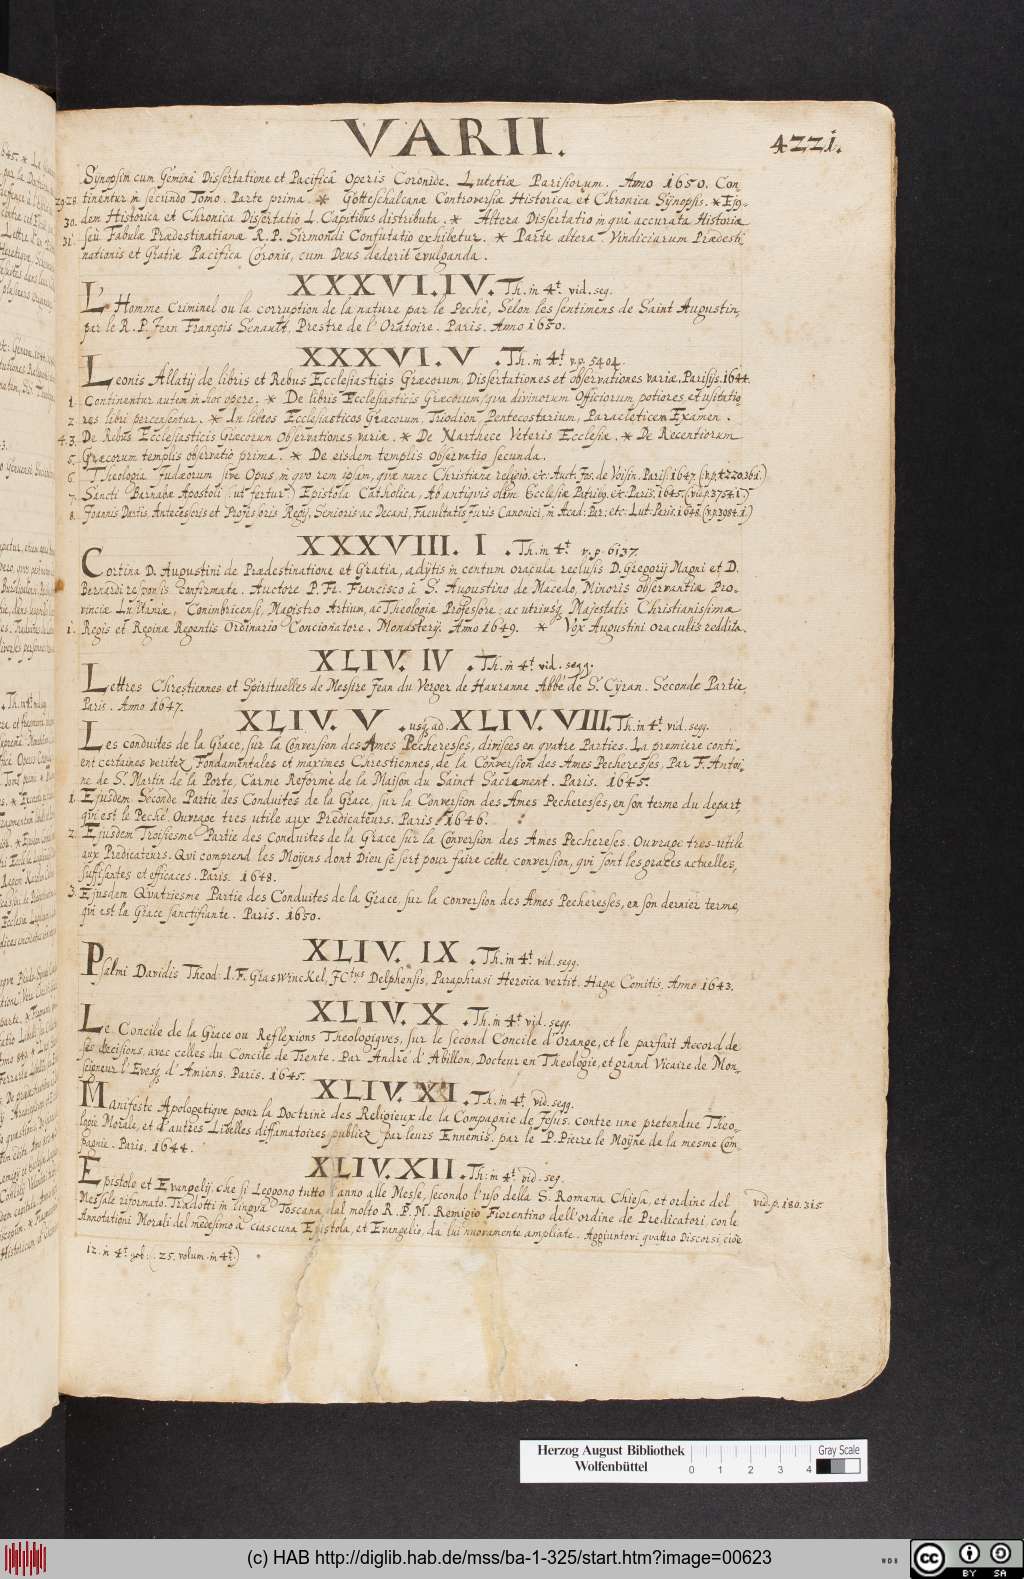 VARII. 4221.
Synopsim cum Gemina Dissertatione et Pacifica Operis Coronide. Lutetiæ Parisiorum. Anno 1650. Con-
29.28 tinentur in secundo Tomo. Parte prima. * Gotteschalcanæ Controversiæ Historica et Chronica Synopsis. * Ejg-
30. dem Historica et Chronica Dissertatio L. Capitibus distributa. * Altera Dissertatio in quâ accurata Historiæ
31. seu Fabulæ Prædestinatianæ R.P. Sirmondi Confutatio exhibetur. * Parte altera Vindiciarum Prædesti-
nationis et Gratiæ Pacifica Coronis, cum Deus dederit evulganda.
XXXVI.IV. Th. in 4t. vid. seg.
L'Homme Criminel ou la corruption de la nature par le Peché, Selon les sentimens de Saint Augustin,
par le R.P. Jean François Senault, Prestre de l'Oratoire. Paris. Anno 1650.
XXXVI.V. Th. in 4t v.p. 5404.
Leonis Allatij de libris et Rebus Ecclesiasticis Græcorum Dissertationes et observationes variæ. Parisijs. 1644.
1 Continentur autem in hoc opere. * De libris Ecclesiasticis Græcorum, qua divinorum Officiorum potiores et usitatio
2 res libri percensentur. * In libros Ecclesiasticos Græcorum, Triodion, Pentecostarium, Paracleticem Examen.
4.3. De Rebus Ecclesiasticis Græcorum Observationes variæ. * De Narthece Veteris Ecclesiæ. * De Recentiorum
5. Græcorum templis observatio prima. * De eisdem templis Observatio secunda.
6. Theologia Judæorum sive Opus, in quo rem ipsam, quæ nunc Christiana religio. etc: Auct. Jos. de Voisin. Paris. 1647. (v.p. 4220.36.1.)
7. Sancti Barnabæ Apostoli (ut fertur) Epistola Catholica, Ab antiquis olim Ecclesiæ Patrib9. etc. Paris. 1645. (vid.p. 3754.1.)
8. Joannis Dartis, Antecessoris et Professoris Regij, Senioris ac Decani, Facultatis Juris Canonici, in Acad: Par: etc: Lut: Paris. 1648. (v.p. 3984.1.)
XXXVIII. I. Th. in 4t v.p. 6137.
Cortina D. Augustini de Prædestinatione et Gratia, adytis in centum oracula reclusis D. Gregorij Magni et D.
Bernardi responsis confirmata. Auctore P. Fr. Francisco â S. Augustino de Macedo, Minoris observantiæ Pro-
vinciæ Lusitaniæ, Conimbricensi, Magistro Artium, ac Theologiæ Professore: ac utriusq Majestatis Christianissimæ
1. Regis et Reginæ Regentis Ordinario Concionatore. Monasterij. Anno 1649. * Vox Augustini oraculis reddita.
XLIV. IV. Th. in 4t vid. segg.
Lettres Chrestiennes et Spirituelles de Messire Jean du Verger de Hauranne Abbé de S. Cyran. Seconde Partie,
Paris. Anno 1647.
XLIV. V. usq ad XLIV. VIII. Th. in 4t vid. segg.
Les conduites de la Grace, sur la Conversion des Ames Pecheresses, divisées en quatre Parties. La premiere conti-
ent certaines veritez Fondamentales et maximes Chrestiennes, de la Conversion des Ames Pecheresses, Par F. Antoi-
ne de St. Martin de la Porte, Carme Reformé de la Maison du Sainct Sacrement. Paris. 1645.
1. Ejusdem Seconde Partie des Conduites de la Grace, sur la Conversion des Ames Pecheresses, en son terme du depart
qui est le Peché. Ouvrage tres utile aux Predicateurs. Paris 1646.
2. Ejusdem Troisiesme Partie des Conduites de la Grace sur la Conversion des Ames Pecheresses. Ouvrage tres-utile
aux Predicateurs. Qvi comprend les Moyens dont Dieu se sert pour faire cette conversion, qvi sont les graces actuelles,
suffisantes et efficaces. Paris. 1648.
3. Ejusdem Quatriesme Partie des Conduites de la Grace, sur la conversion des Ames Pecheresses, en son dernier terme,
qui est la Grace sanctifiante. Paris. 1650.
XLIV. IX. Th. in 4t vid. segg.
Psalmi Davidis Theod: I.F. Graswinckel, JCtus Delphensis, Paraphrasi Heroica vertit. Hagæ Comitis, Anno 1643.
XLIV. X. Th. in 4t vid. segg.
Le Concile de la Grace ou Reflexions Theologiqves, sur le second Concile d'Orange, et le parfait Accord de
ses decisions, avec celles du Concile de Trente. Par André d'Abillon, Docteur en Theologie, et grand Vicaire de Mon-
seigneur l'Evesq d'Amiens. Paris. 1645.
XLIV. XI. Th. in 4t. vid. segg.
Manifeste Apologetique pour la Doctrine des Religieux de la Compagnie de Jesus. contre une pretendue Theo-
logie Morale, et d'autres Libelles diffamatoires publiez par leurs Ennemis. par le P. Pierre le Moyne de la mesme Com
pagnie. Paris. 1644.
XLIV.XII. Th: in 4t. vid. seg.
Epistole et Evangelij, che si Leggono tutto l'anno alle Messe, secondo l'uso della S. Romana Chiesa, et ordine del vid.p. 180.315
Messale riformato. Tradotti in lingva Toscana dal molto R.P.M. Remigio Fiorentino dell'ordine de Predicatori. con le
Annotationi Morali del medesimo à ciascuna Epistola, et Evangelio, da lui nuovamente ampliate. Aggiuntovi quattro Discorsi, cioè
12. in 4t geb: (: 25. volum. in 4t.)
Herzog August Bibliothek
Wolfenbüttel
0 1 2 3 4
Gray Scale
(c) HAB http://diglib.hab.de/mss/ba-1-325/start.htm?image=00623
WDB
cc BY SA